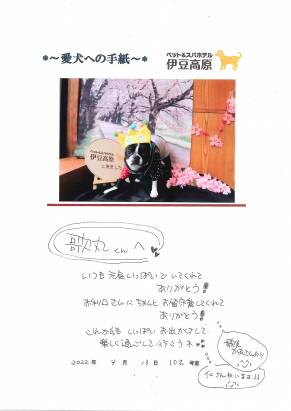 *～愛犬への手紙～*
ペット&スパホテル
伊豆高原
ペット&スパホテル
伊豆高原
に来ました
歌丸くんへ
いつも元気いっぱいでいてくれて
ありがとう!
お利口さんにちゃんとお留守番してくれて
ありがとう!
これからも いっぱい お出かけして
楽しく過ごして行こうネ
2022年 4月 13日 102号室